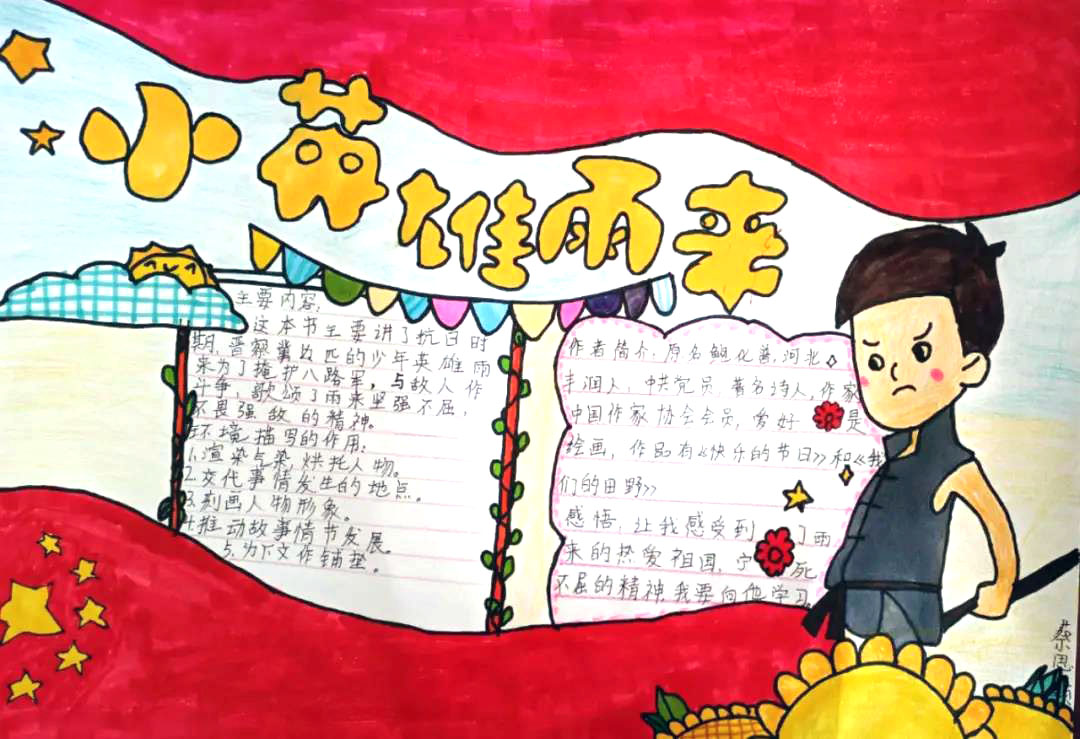 小英雄雨来
主要内容:
这本书主要讲了抗日时
期,晋察冀边区的少年英雄雨
来为了掩护八路军,与敌人作
斗争,歌颂了雨来坚强不屈,
不畏强敌的精神。
环境描写的作用:
1.渲染气氛 烘托人物。
2.交代事情发生的地点。
3.刻画人物形象。
4.推动故事情节发展。
5.为下文作铺垫。
作者简介:原名 化普,河北
丰润人,中共党员,著名诗人,作家
中国作家协会会员,爱好 是
绘画,作品有《快乐的节日》和《我
们的田野》
感悟:让我感受到 了雨
来的热爱祖国,宁 死
不屈的精神我要向他学习。
蔡